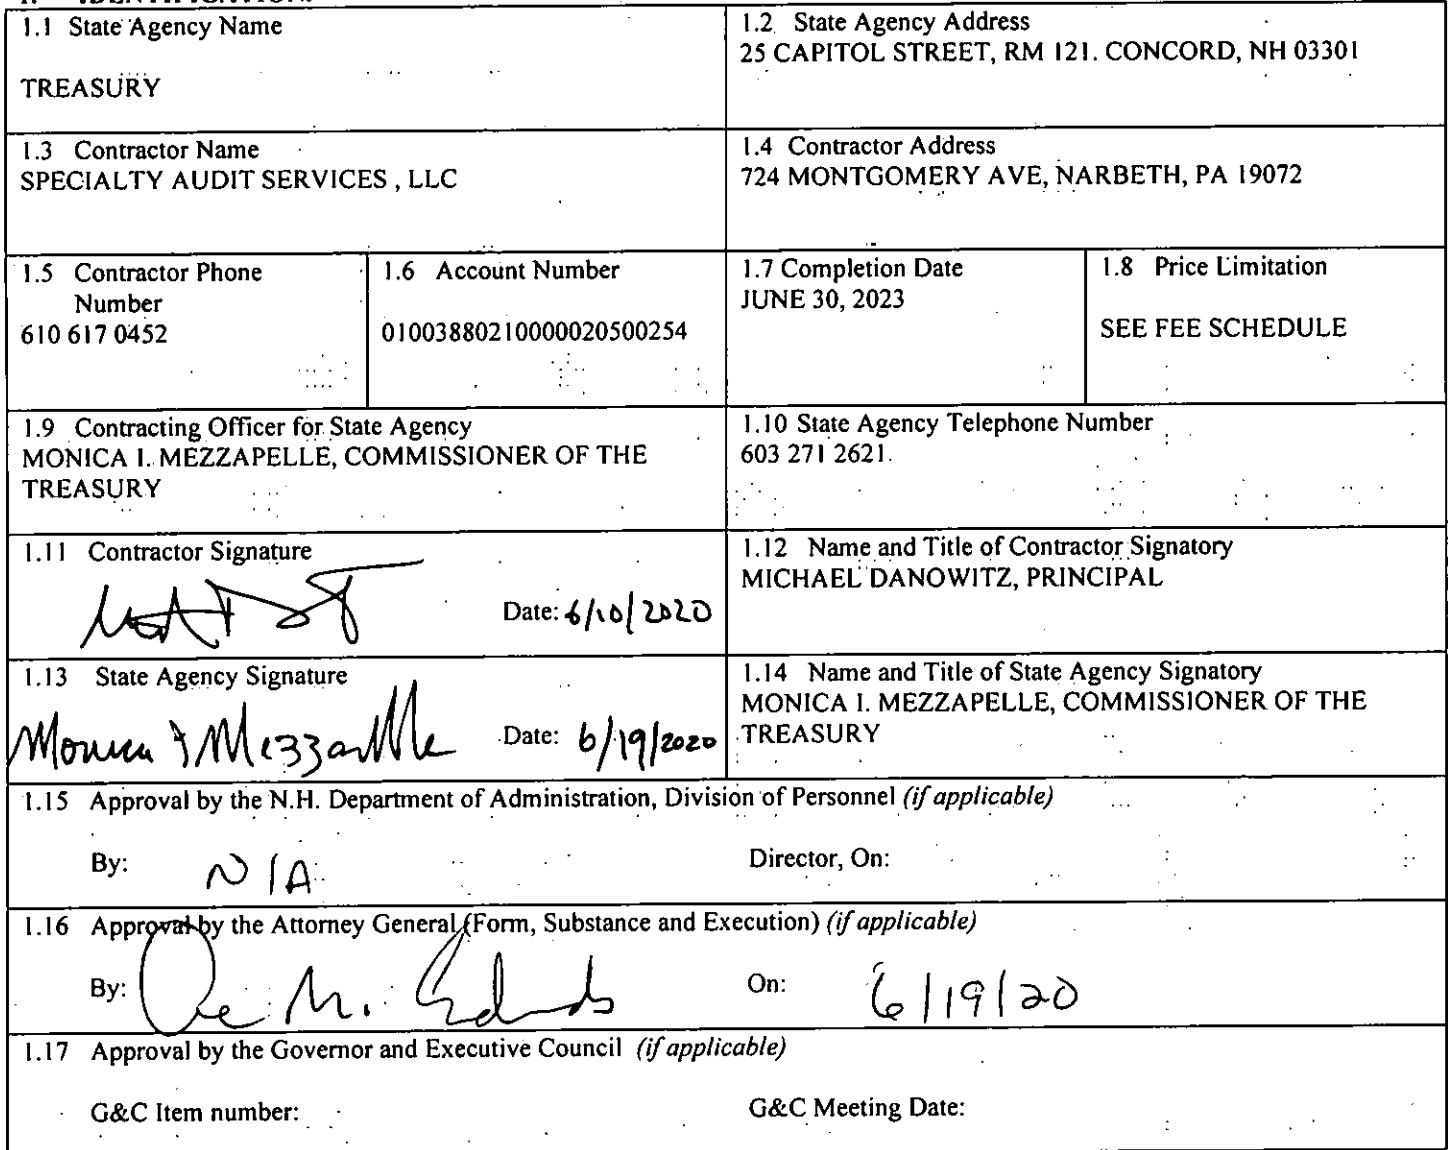 1.1 State Agency Name
TREASURY
1.2 State Agency Address
25 CAPITOL STREET, RM 121. CONCORD, NH 03301
1.3 Contractor Name
SPECIALTY AUDIT SERVICES , LLC
1.4 Contractor Address
724 MONTGOMERY AVE, NARBETH, PA 19072
1.5 Contractor Phone
Number
610 617 0452
1.6 Account Number
01003880210000020500254
1.7 Completion Date
JUNE 30, 2023
1.8 Price Limitation
SEE FEE SCHEDULE
1.9 Contracting Officer for State Agency
MONICA I. MEZZAPELLE, COMMISSIONER OF THE
TREASURY
1.10 State Agency Telephone Number
603 271 2621
1.11 Contractor Signature
Date: 6/10/2020
1.12 Name and Title of Contractor Signatory
MICHAEL DANOWITZ, PRINCIPAL
1.13 State Agency Signature
Monica I Mezzapelle Date: 6/19/2020
1.14 Name and Title of State Agency Signatory
MONICA I. MEZZAPELLE, COMMISSIONER OF THE
TREASURY
1.15 Approval by the N.H. Department of Administration, Division of Personnel (if applicable)
By: N/A Director, On:
1.16 Approval by the Attorney General (Form, Substance and Execution) (if applicable)
By: On: 6/19/20
1.17 Approval by the Governor and Executive Council (if applicable)
G&C Item number: G&C Meeting Date: